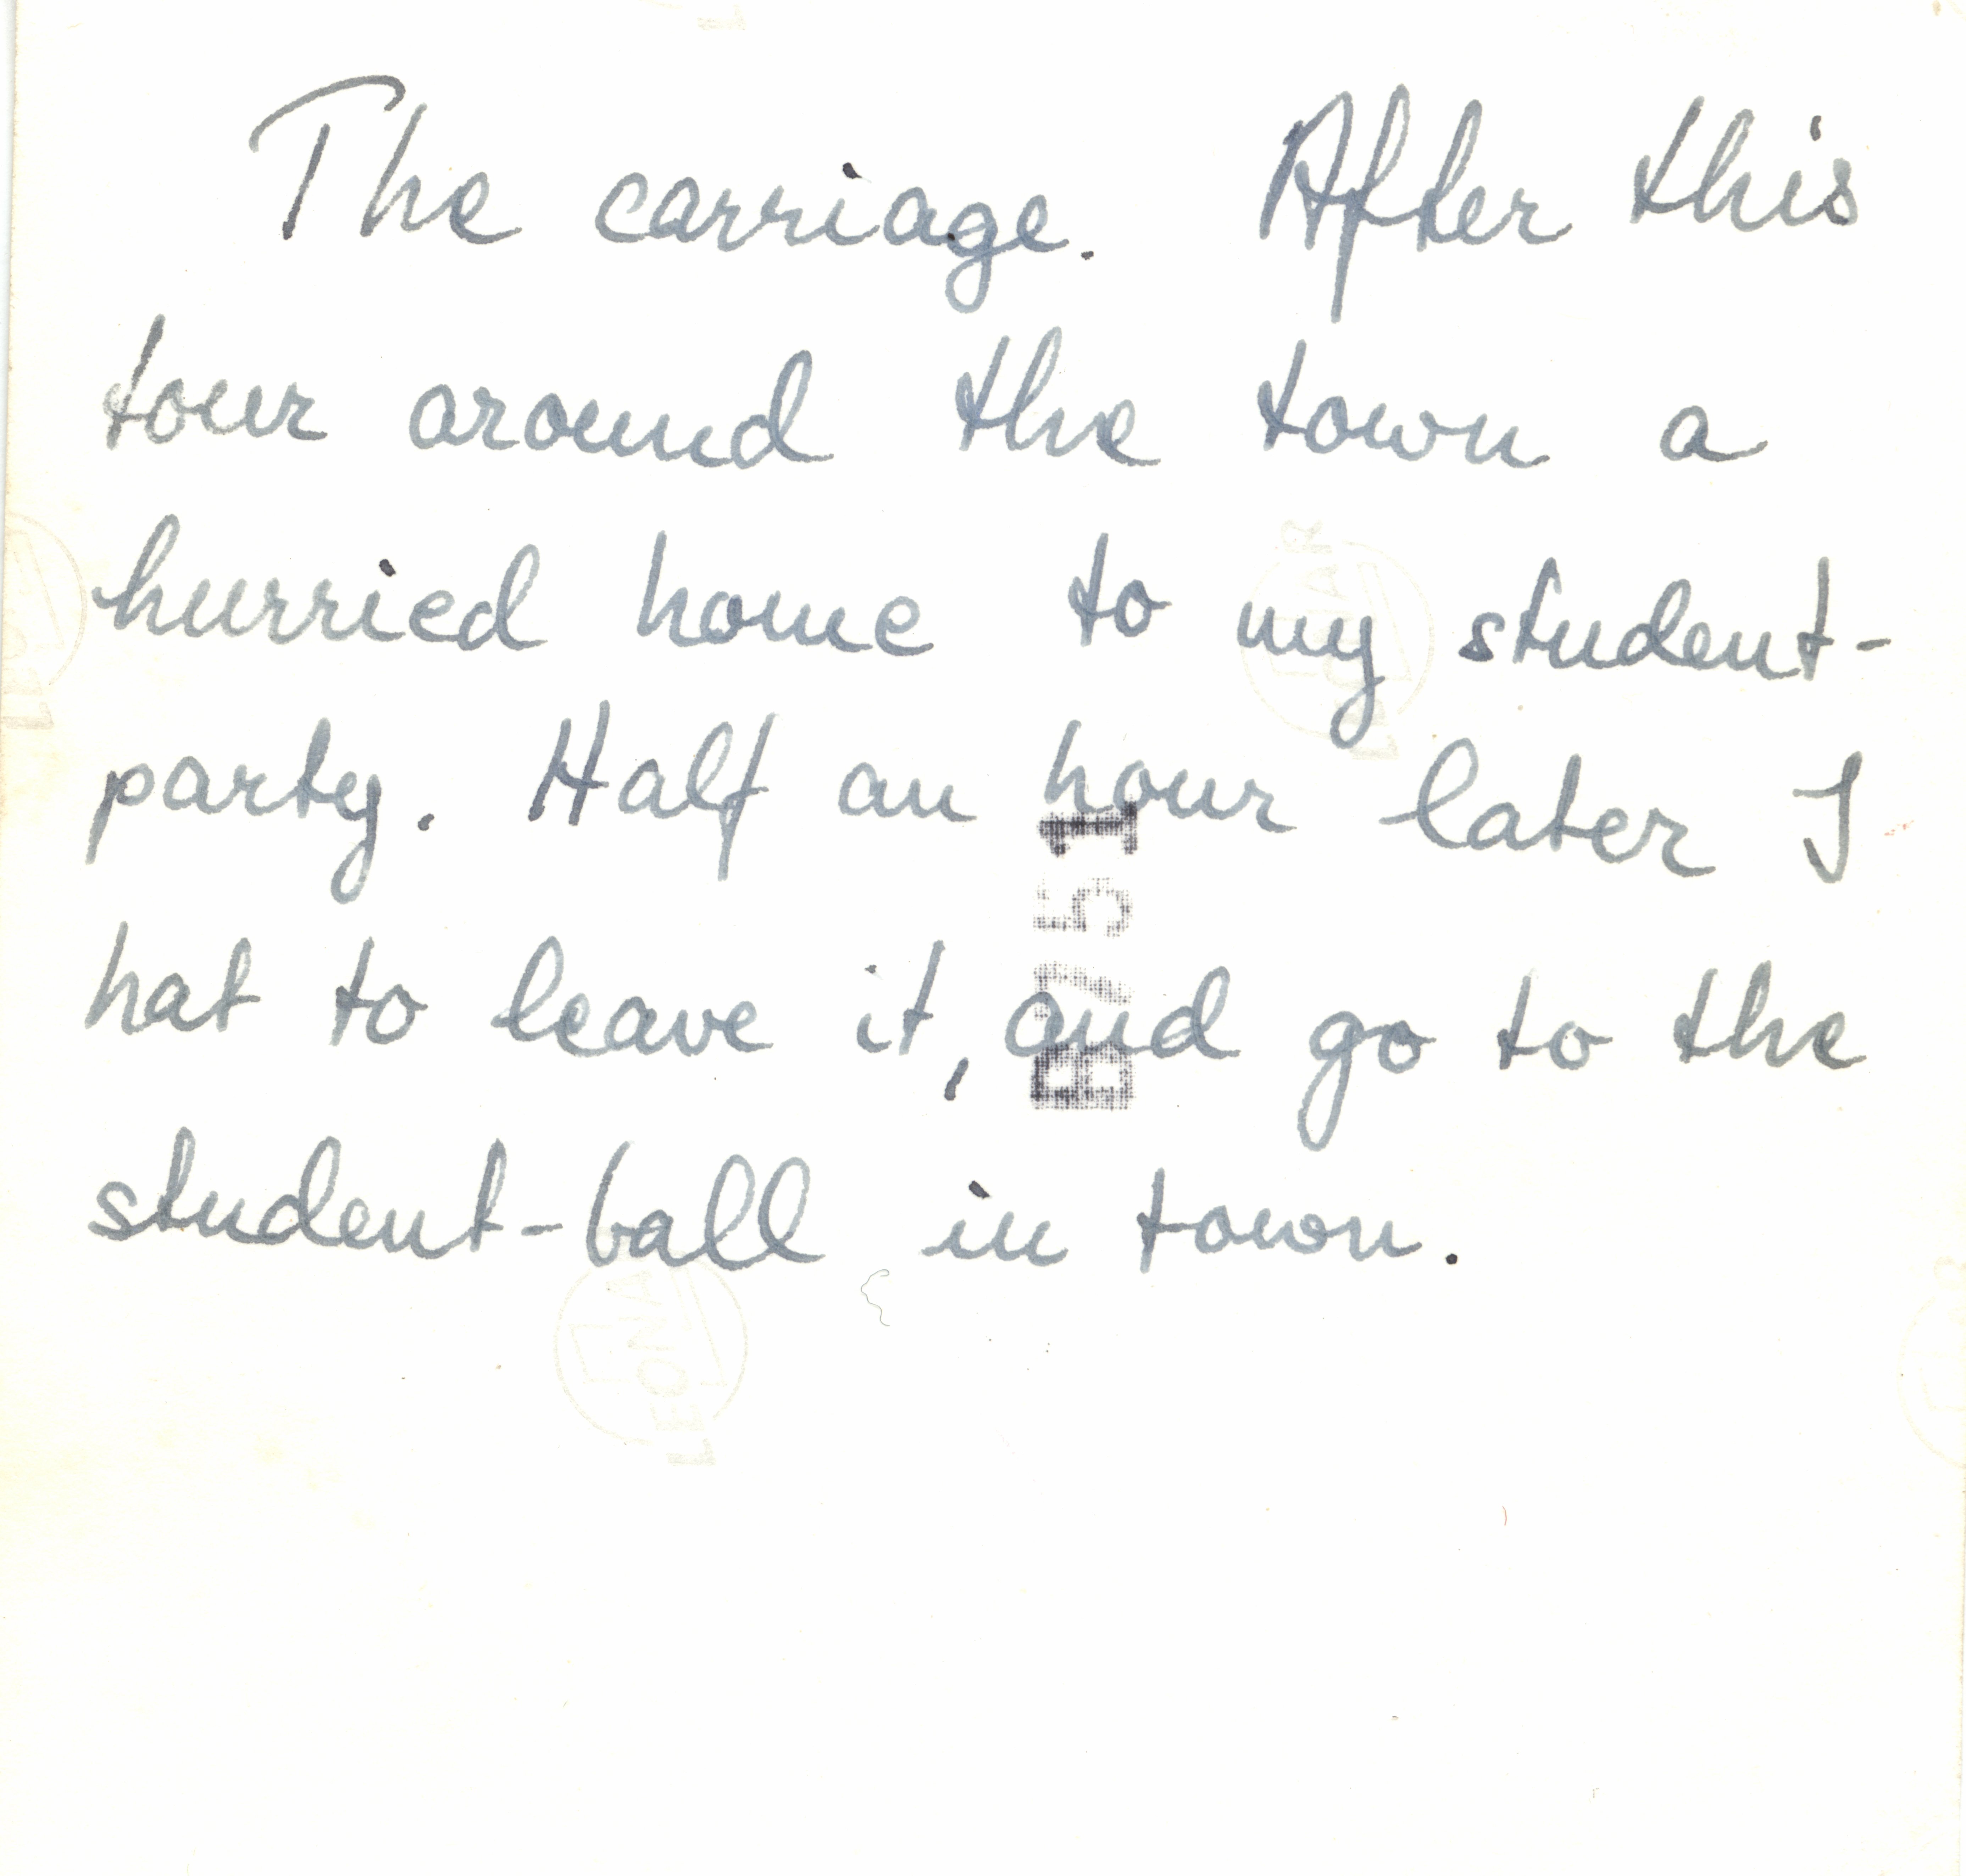 The carriage. After this
tour around the town a
hurried home to my student-
party. Half an hour later I
hat to leave it, and go to the
student-ball in town.
B/751
LEONAR